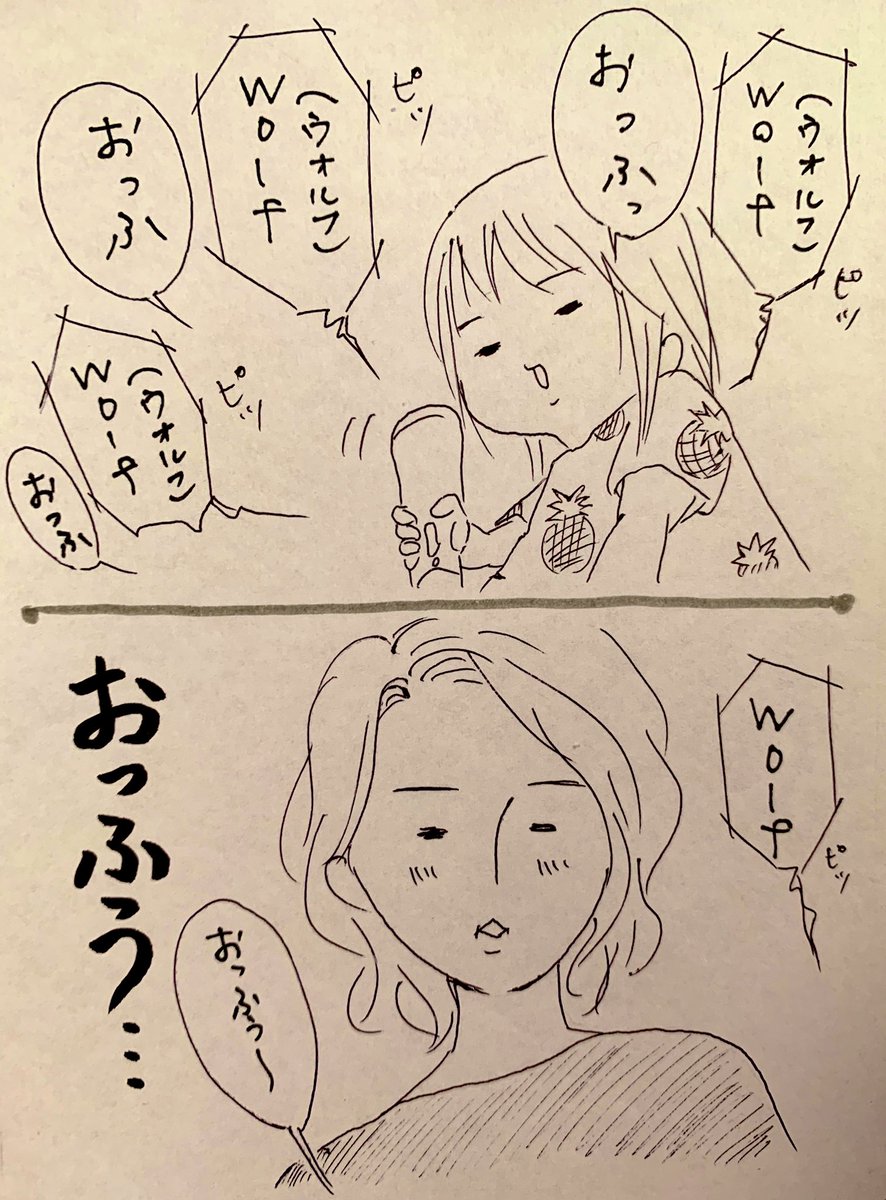 wolf
(ウォルフ)
ピッ
おっふっ
wolf
(ウォルフ)
ピッ
おっふ
wolf
(ウォルフ)
ピッ
おっふ
wolf
ピッ
おっふぅ〜
おっふぅ…